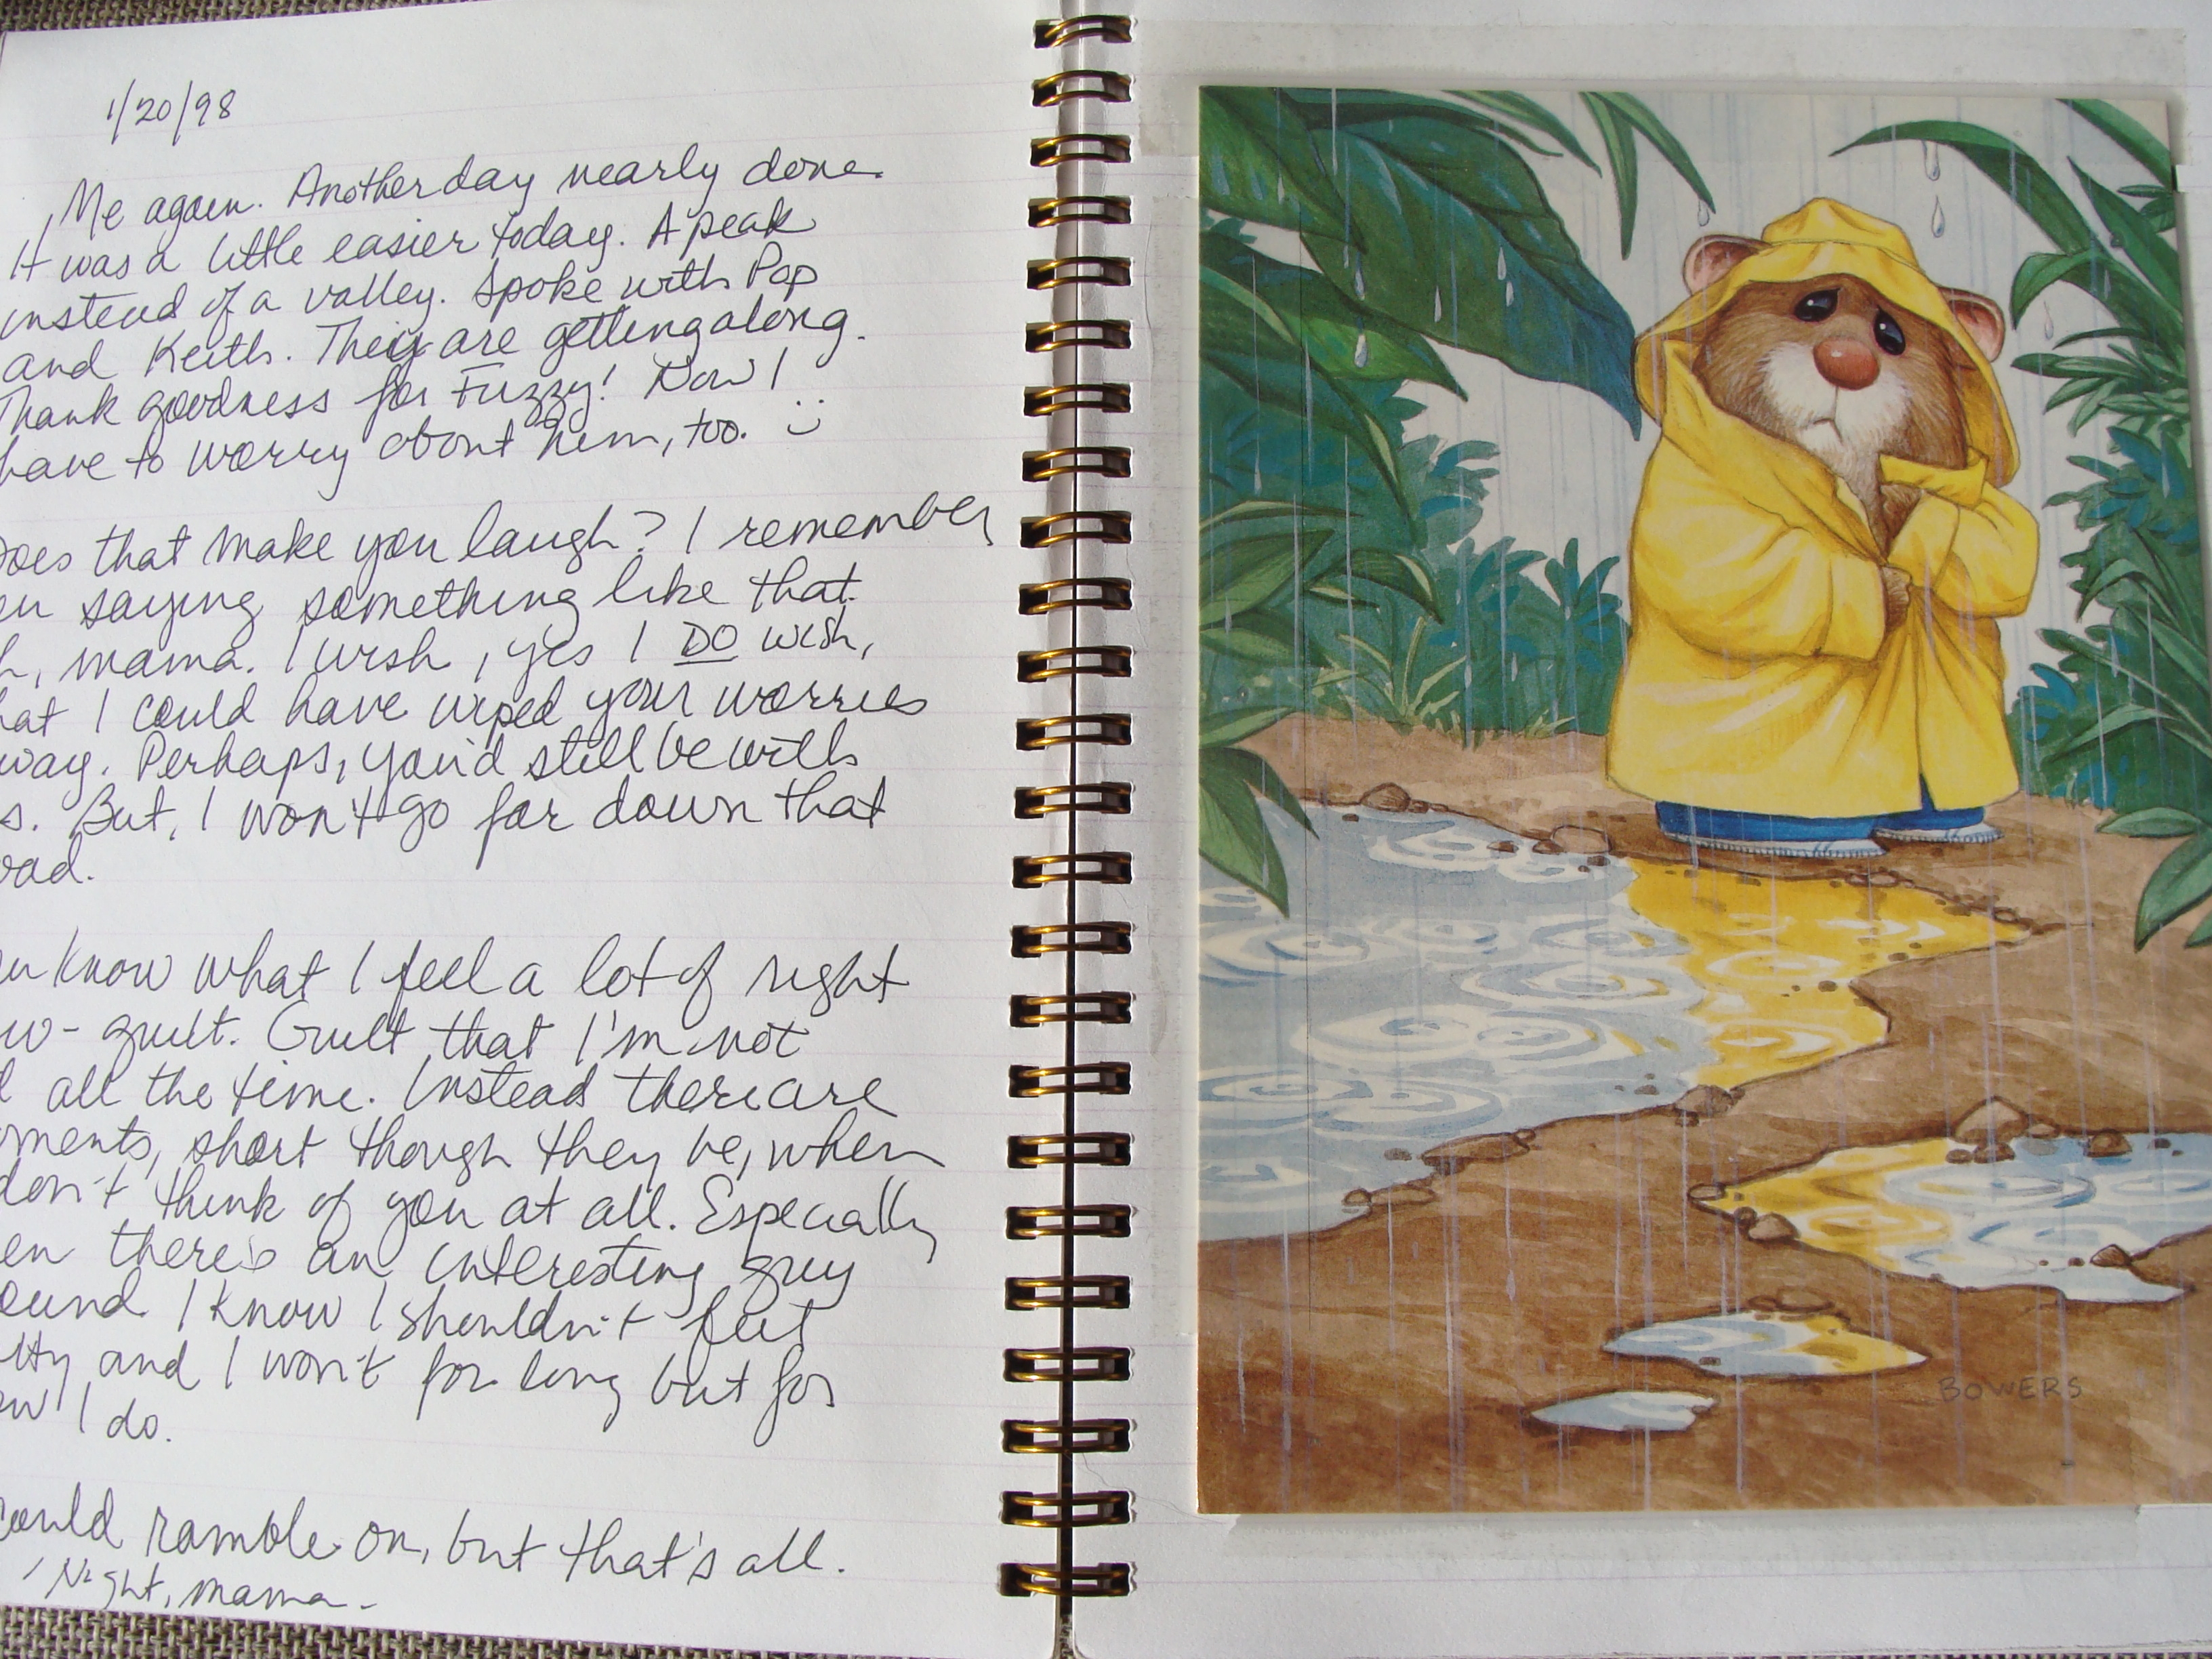 1/20/98
Me again. Another day nearly done.
It was a little easier today. A peak
instead of a valley. Spoke with Pop
and Keith. They are getting along.
Thank goodness for Fuzzy! Now I
have to worry about him, too. :)
Does that make you laugh? I remember
saying something like that.
mama. I wish, yes I DO wish,
hat I could have wiped your worries
way. Perhaps, you'd still be with
s. But, I won't go far down that
oad.
ou know what I feel a lot of right
ow - guilt. Guilt that I'm not
d all the time. Instead there are
oments, short though they be, when
don't think of you at all. Especially
en there's an interesting guy
ound. I know I shouldn't feel
lty and I won't for long but for
ow I do.
could ramble on, but that's all.
'Night, mama.
BOWERS